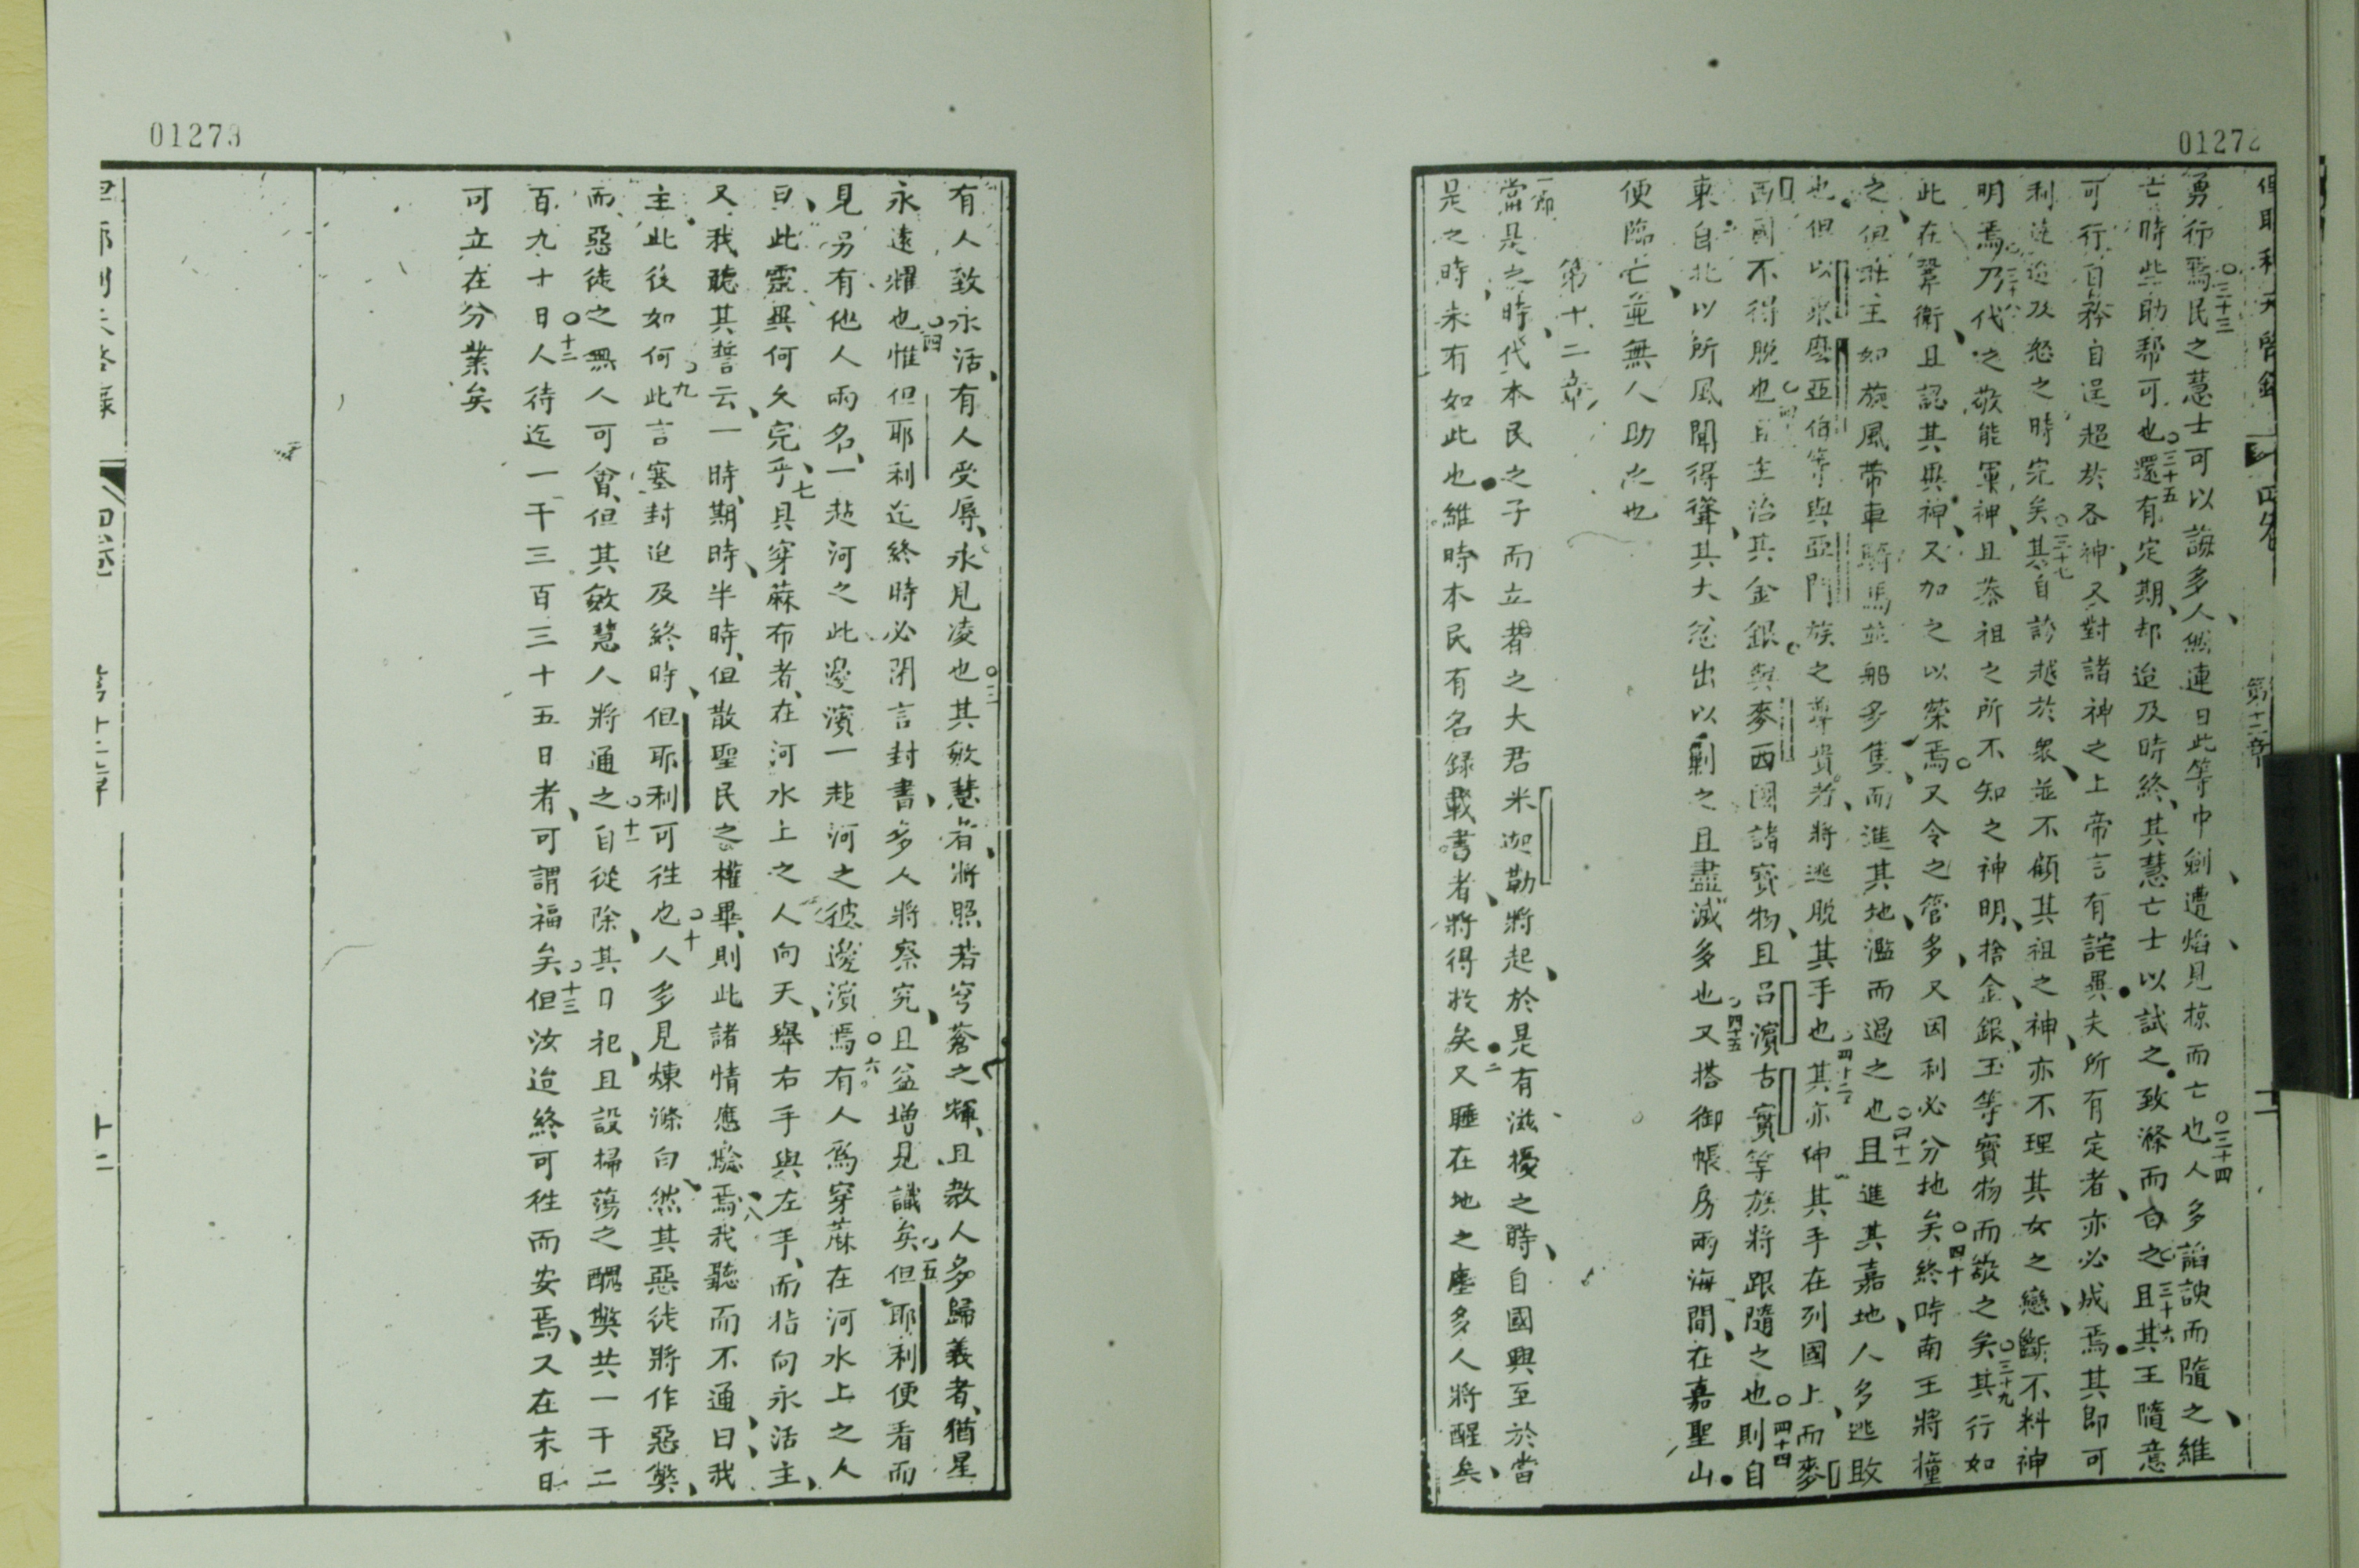 01272
但耶利天啓錄 四卷 第十二章
勇行焉○三十三民之慧士可以誨多人然連日此等巾劍遭焰見掠而亡也○三十四人多諂諛而隨之維
亡時些助帮可也○三十五還有定期却迨及時終其慧亡士以試之致滌而白之○三十六且其王隨意
可行自務自逞超於各神又對諸神之上帝言有詫異夫所有定者亦必成焉其即可
利達迨及怒之時完矣○三十七其自誇越於衆並不顧其祖之神亦不理其女之戀斷不料神
明焉○三十八乃代之敬能軍神且恭祖之所不知之神明捨金銀玉等寳物而敬之矣○三十九其行如
此在鞏衛且認其異神又加之以榮焉又令之管多又因利必分地矣○四十終時南王將撞
之但北主如旋風帶車騎馬並船多隻而進其地濫而過之也○四十一且進其嘉地人多逃敗
也但以東麽亞伯等與亞門族之尊貴者將逃脫其手也○四十二其亦伸其手在列國上而麥
西國不得脫也○四十三且主治其金銀與麥西國諸寳物且呂濱古實等族將跟隨之也○四十四則自
東自北以所風聞得聳其大忿出以剿之且盡滅多也○四十五又搭御帳房兩海間在嘉聖山
便臨亡並無人助之也
第十二章
一節當是之時代本民之子而立者之大君米迦勒將起於是有滋擾之時自國興至於當
是之時未有如此也維時本民有名錄載書者將得救矣○二又睡在地之塵多人將醒矣
01273
有人致永活有人受辱永見凌也○三其敏慧者將照若穹蒼之輝且教人多歸義者猶星
永遠耀也○四惟但耶利迄終時必閉言封書多人將察究且益增見識矣○五但耶利便看而
見另有他人兩名一趂河之此邊濱一趂河之彼邊濱焉○六有人爲穿蔴在河水上之人
曰此靈異何久完乎○七具穿蔴布者在河水上之人向天舉右手與左手而指向永活主
又我聽其誓云一時期時半時但散聖民之權畢則此諸情應驗焉○八我聽而不通曰我
主此後如何○九此言塞封迨及終時但耶利可徃也○十人多見煉滌白然其惡徒將作惡獘
而惡徒之無人可會但其敏慧人將通之○十一自從除其日祀且設掃蕩之醜獘共一千二
百九十日○十二人待迄一千三百三十五日者可謂福矣○十三但汝迨終可徃而安焉又在末日
可立在分業矣
但耶利天啓錄 四卷 第十二章 十二